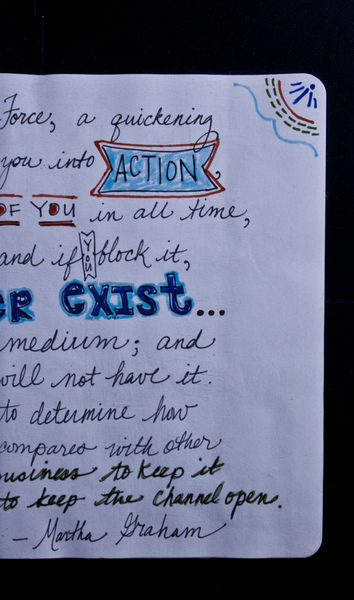 Force, a quickening
you into ACTION,
OF YOU in all time,
and if You block it,
ER EXIST...
medium; and
will not have it.
to determine how
compares with other
business to keep it
to keep the channel open.
— Martha Graham